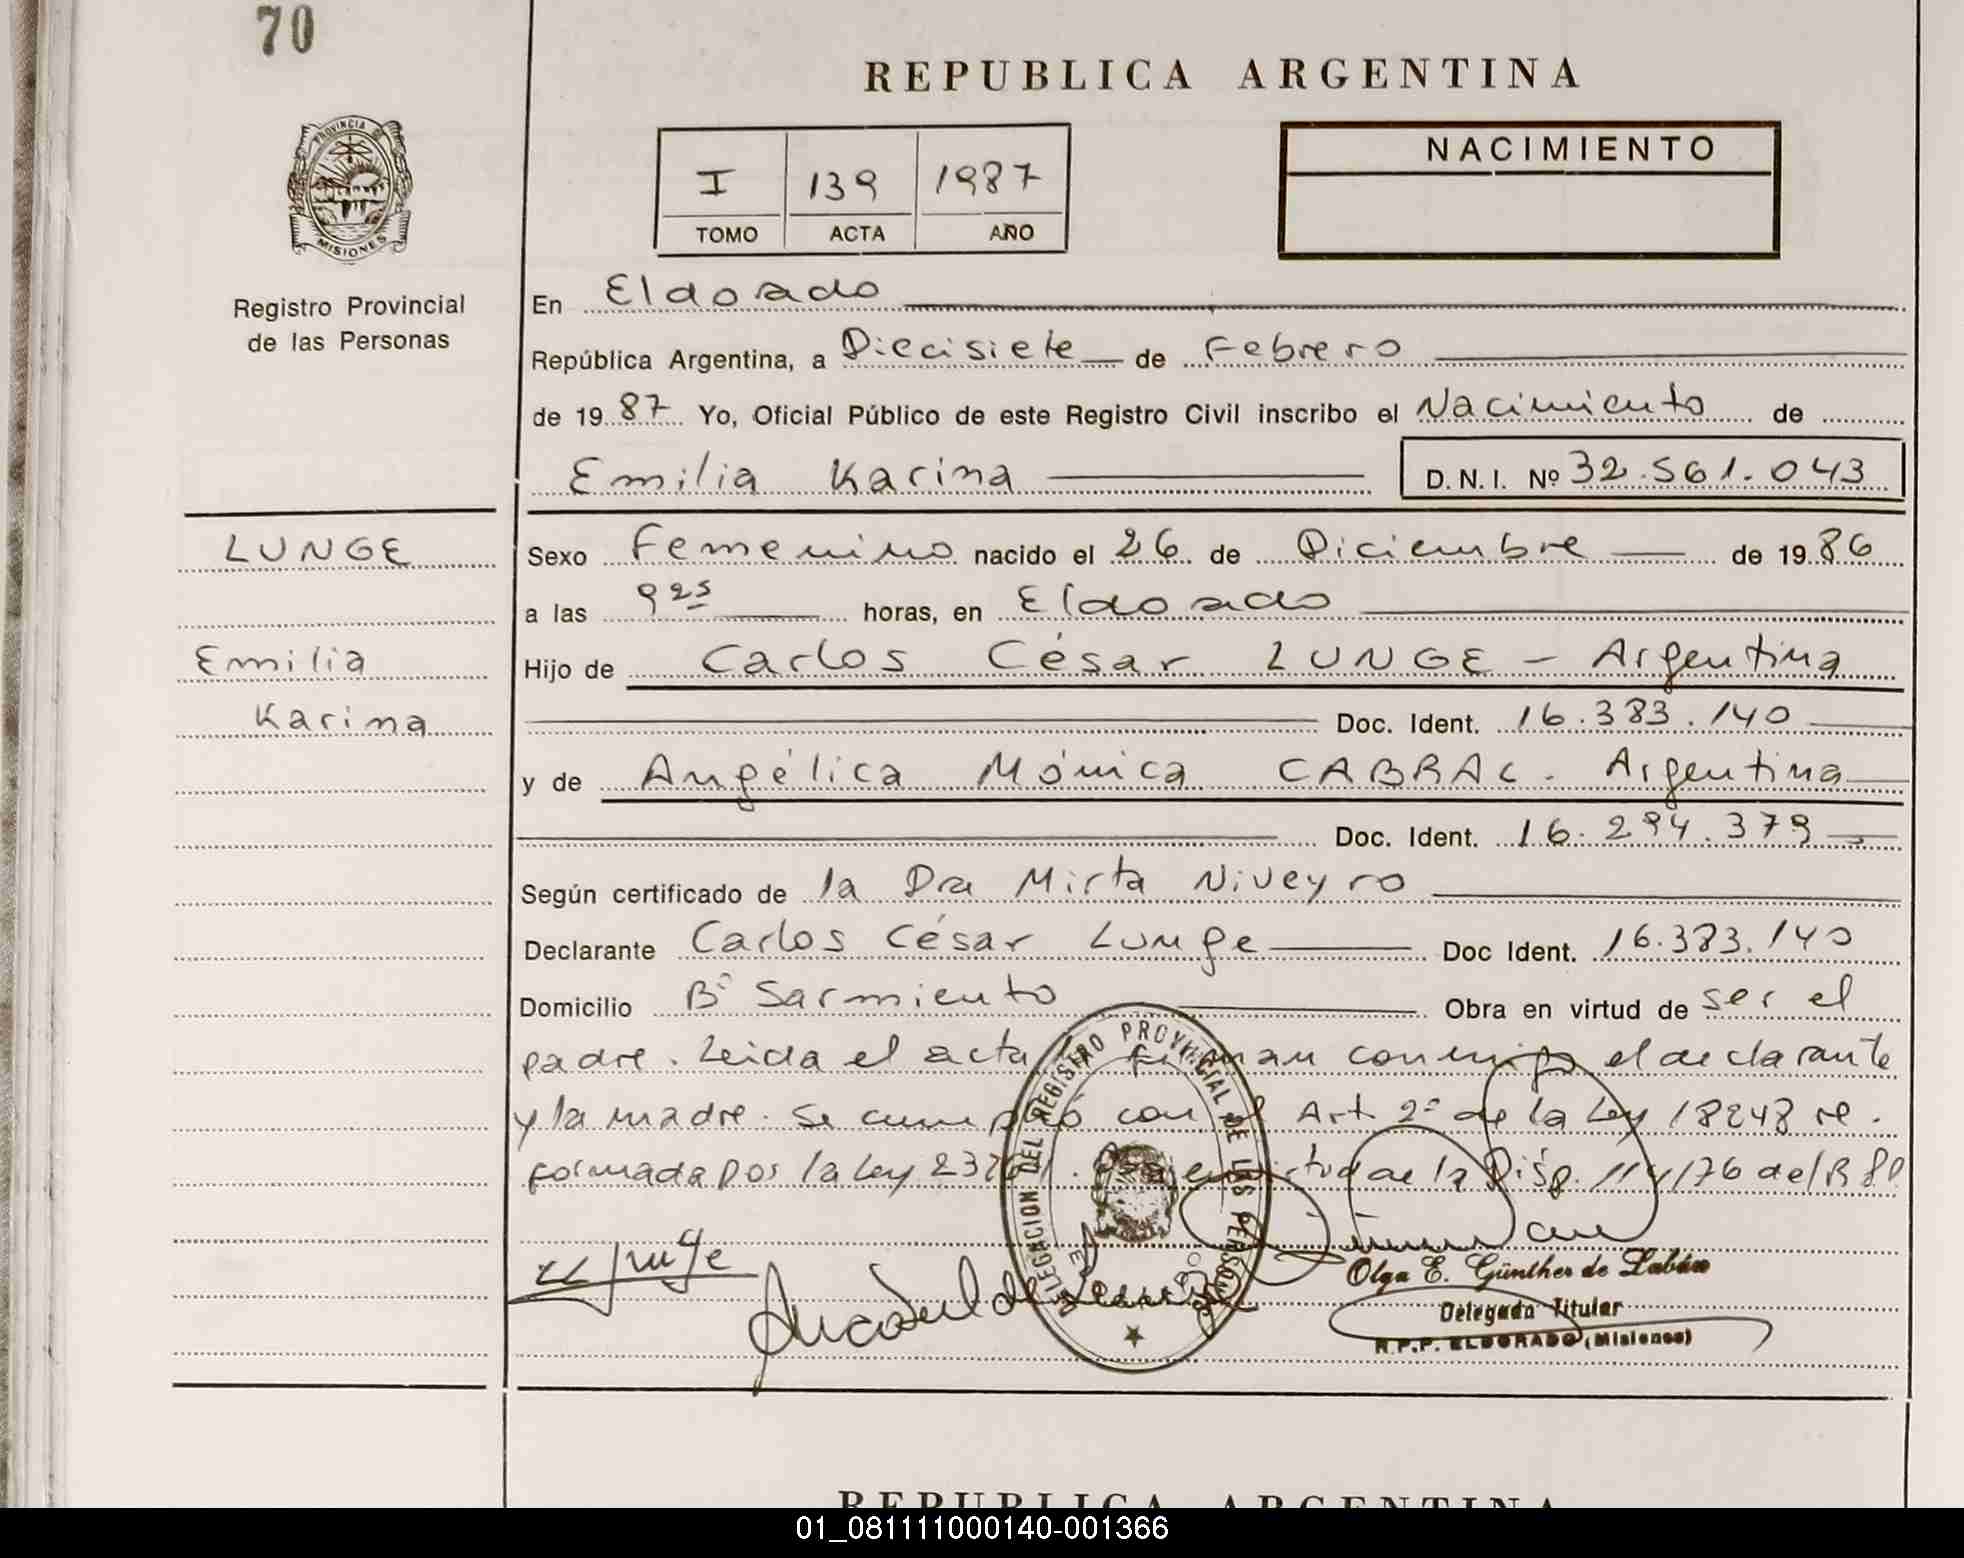 70
REPUBLICA ARGENTINA
PROVINCIA DE
MISIONES
Registro Provincial
de las Personas
I 139 1987
TOMO ACTA AÑO
NACIMIENTO
En Eldorado
República Argentina, a Diecisiete de Febrero
de 19 87 Yo, Oficial Público de este Registro Civil inscribo el Nacimiento de
Emilia Karina D.N.I. Nº 32.561.043
LUNGE
Emilia
Karina
Sexo Femenino nacido el 26 de Diciembre de 19 86
a las 9 25 horas, en Eldorado
Hijo de Carlos César LUNGE - Argentina
Doc. Ident. 16.383.140
y de Angélica Mónica CABRAL. Argentina
Doc. Ident. 16.294.379
Según certificado de la Dra Mirta Niveyro
Declarante Carlos César Lunge Doc Ident. 16.383.140
Domicilio Bº Sarmiento Obra en virtud de ser el
padre. Leida el acta firman conmigo el declarante
y la madre. Se cumplió con el Art 2º de la Ley 18248 re.
formada por la Ley la Disp. 114/76 del R
DELEGACION DEL REGISTRO PROVINCIAL DE LAS PERSONAS
Olga E. Günther de Labán
Delegada Titular
R.P.P. ELDORADO (Misiones)
REPUBLICA ARGENTINA
01_081111000140-001366